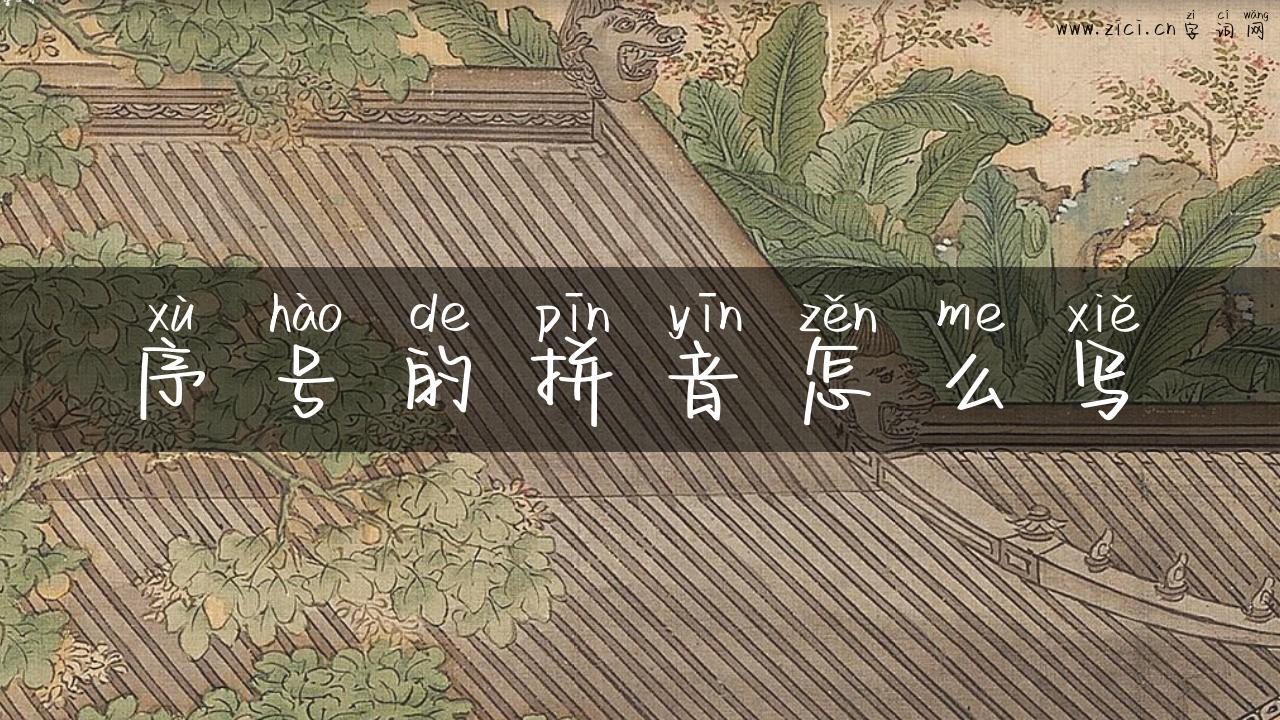 zì cí wǎng
www.zici.cn 字词网
xù hào de pīn yīn zěn me xiě
序号的拼音怎么写